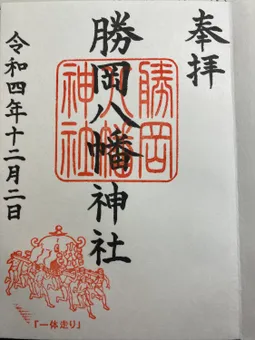 奉拝
勝岡八幡神社
勝岡
八幡
神社
令和四年十二月二日
『一体走り』